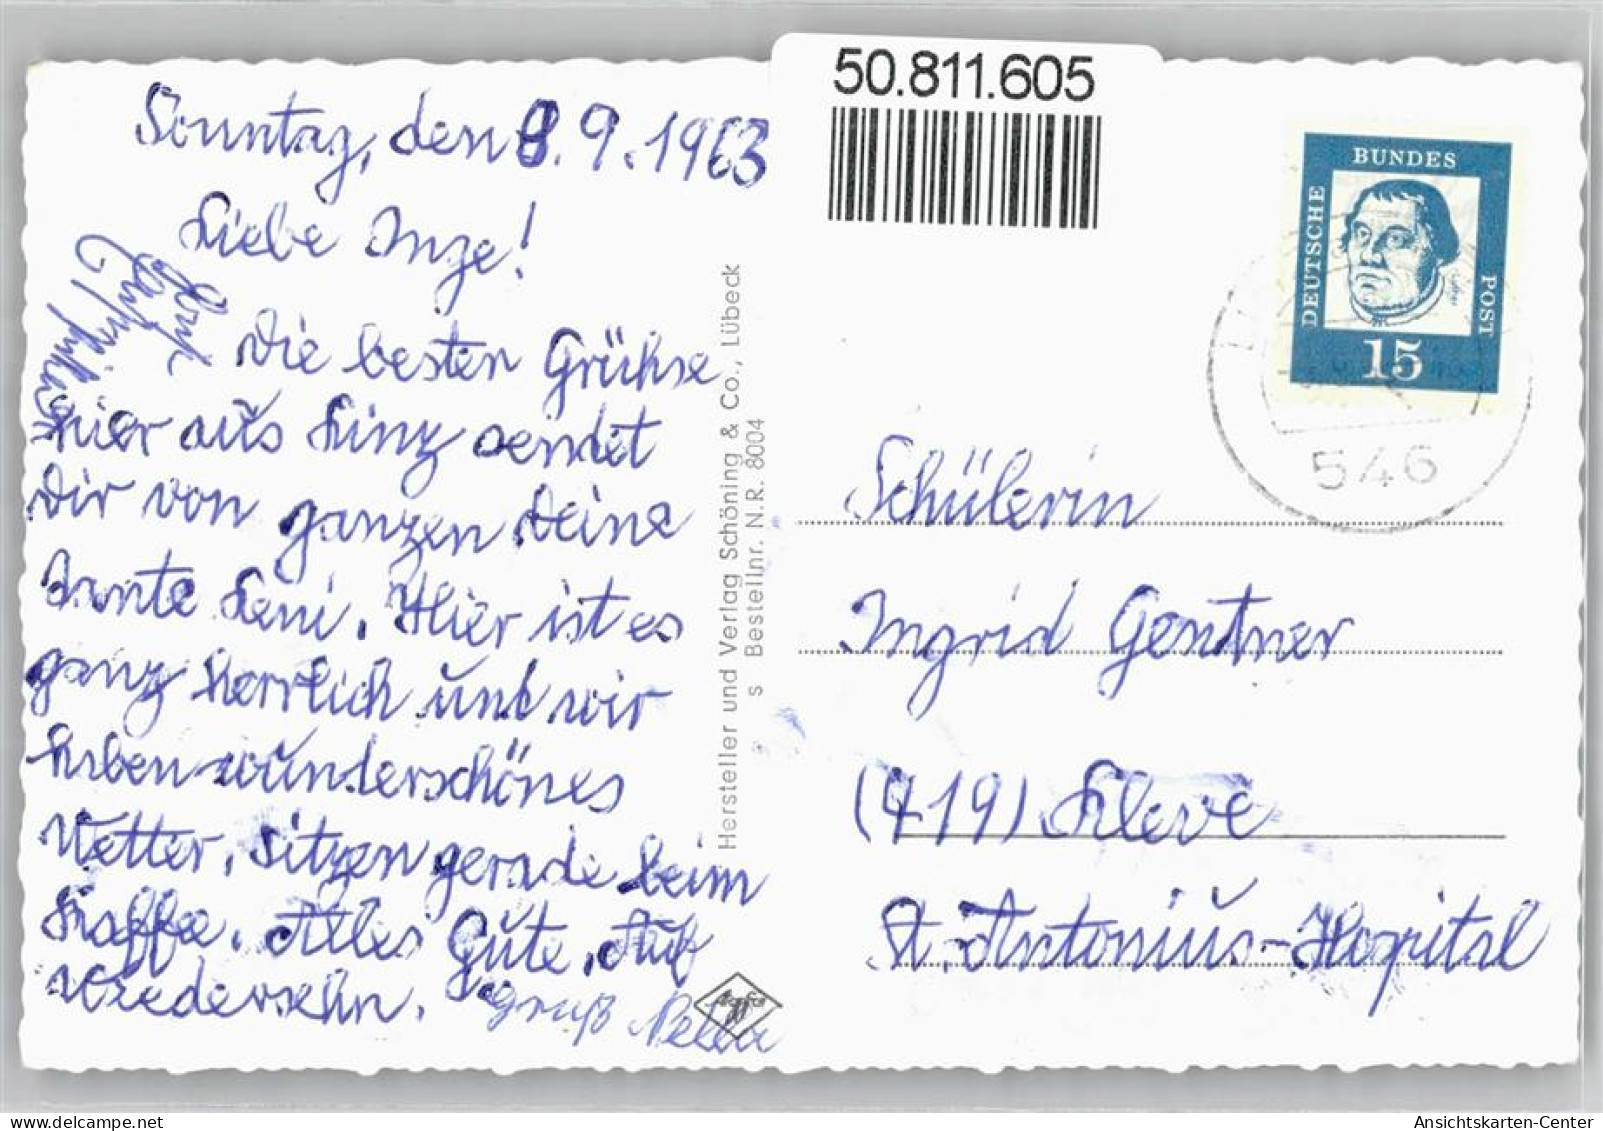 50.811.605
Sonntag, den 8.9.1963
Liebe Inge!
Die besten Grühse
hier aus Linz sendet
Dir von ganzen Deine
Tante Leni. Hier ist es
ganz herrlich und wir
haben wunderschönes
Wetter, sitzen gerade beim
Kaffee. Alles Gute. Auf
Wiedersehn.
Gruß
Hersteller und Verlag Schöning & Co., Lübeck
S Bestellnr. N.R. 8004
DEUTSCHE
BUNDES
POST
15
546
Schülerin
Ingrid Gentner
(419) Kleve
St. Antonius-Hospital
Ansichtskarten-Center